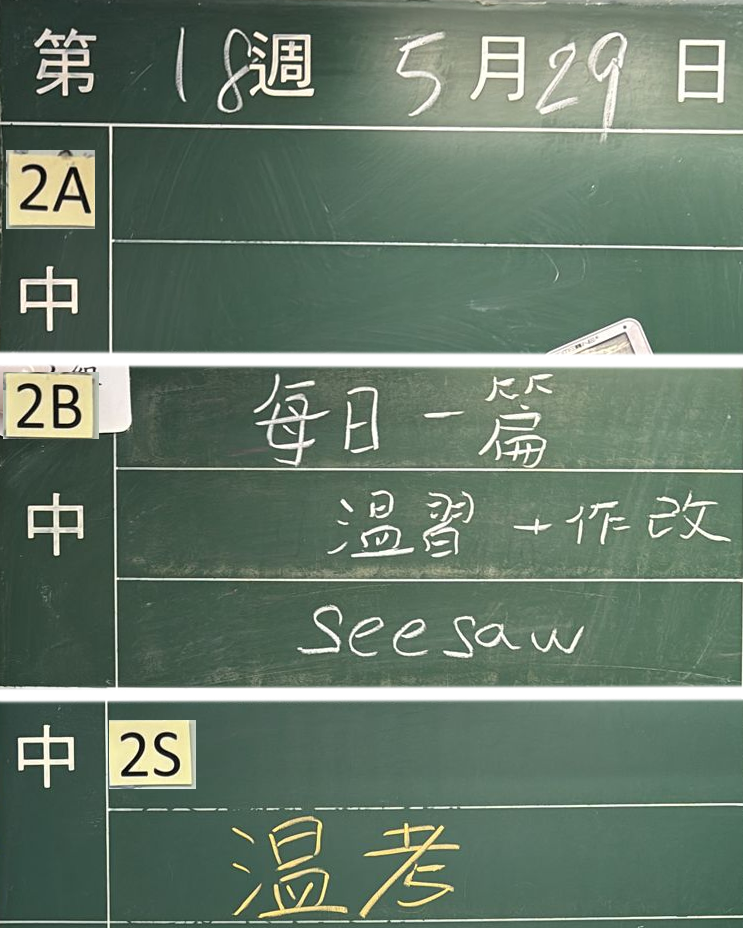 第 18週 5月29日
2A
中
2B 每日一篇
中 溫習 + 作改
seesaw
中 2S
溫考